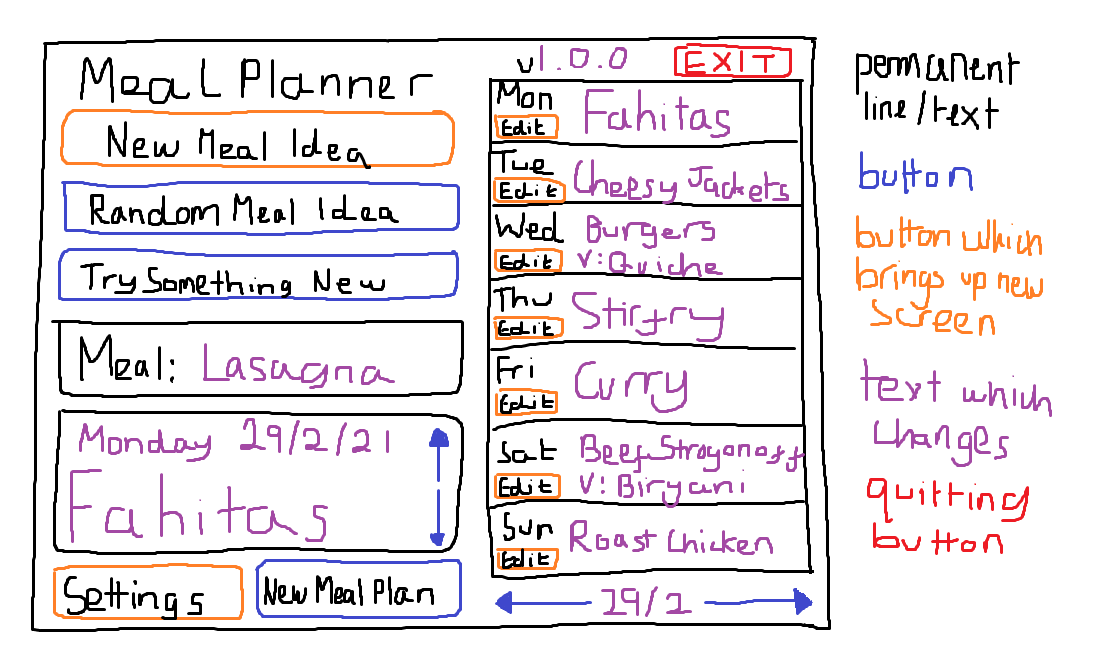 Meal Planner
v1.0.0
EXIT
New Meal Idea
Random Meal Idea
Try Something New
Meal: Lasagna
Monday 29/2/21
Fahitas
Settings
New Meal Plan
Mon
Edit
Fahitas
Tue
Edit
Cheesy Jackets
Wed
Edit
Burgers
V: Quiche
Thu
Edit
Stirfry
Fri
Edit
Curry
Sat
Edit
Beef Stroganoff
V: Biryani
Sun
Edit
Roast Chicken
29/2
permanent
line/text
button
button which
brings up new
screen
text which
changes
quitting
button